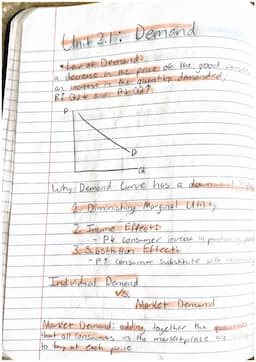 Unit 2.1: Demand
• Law of Demand:
a decrease in the price of the good causes
an increase in the quantity demanded.
P↑ Qd↓ and P↓ Qd↑.
P
D
Qd
Why Demand Curve has a downward
1. Diminishing Marginal Utility
2. Income Effect:
- P↓ consumer increase in purchasing
3. Substitution Effect:
- P↑ consumer substitute with
Individual Demand
vs.
Market Demand
Market Demand: adding together the quantities
that all consumers in the marketplace are
to buy at each price